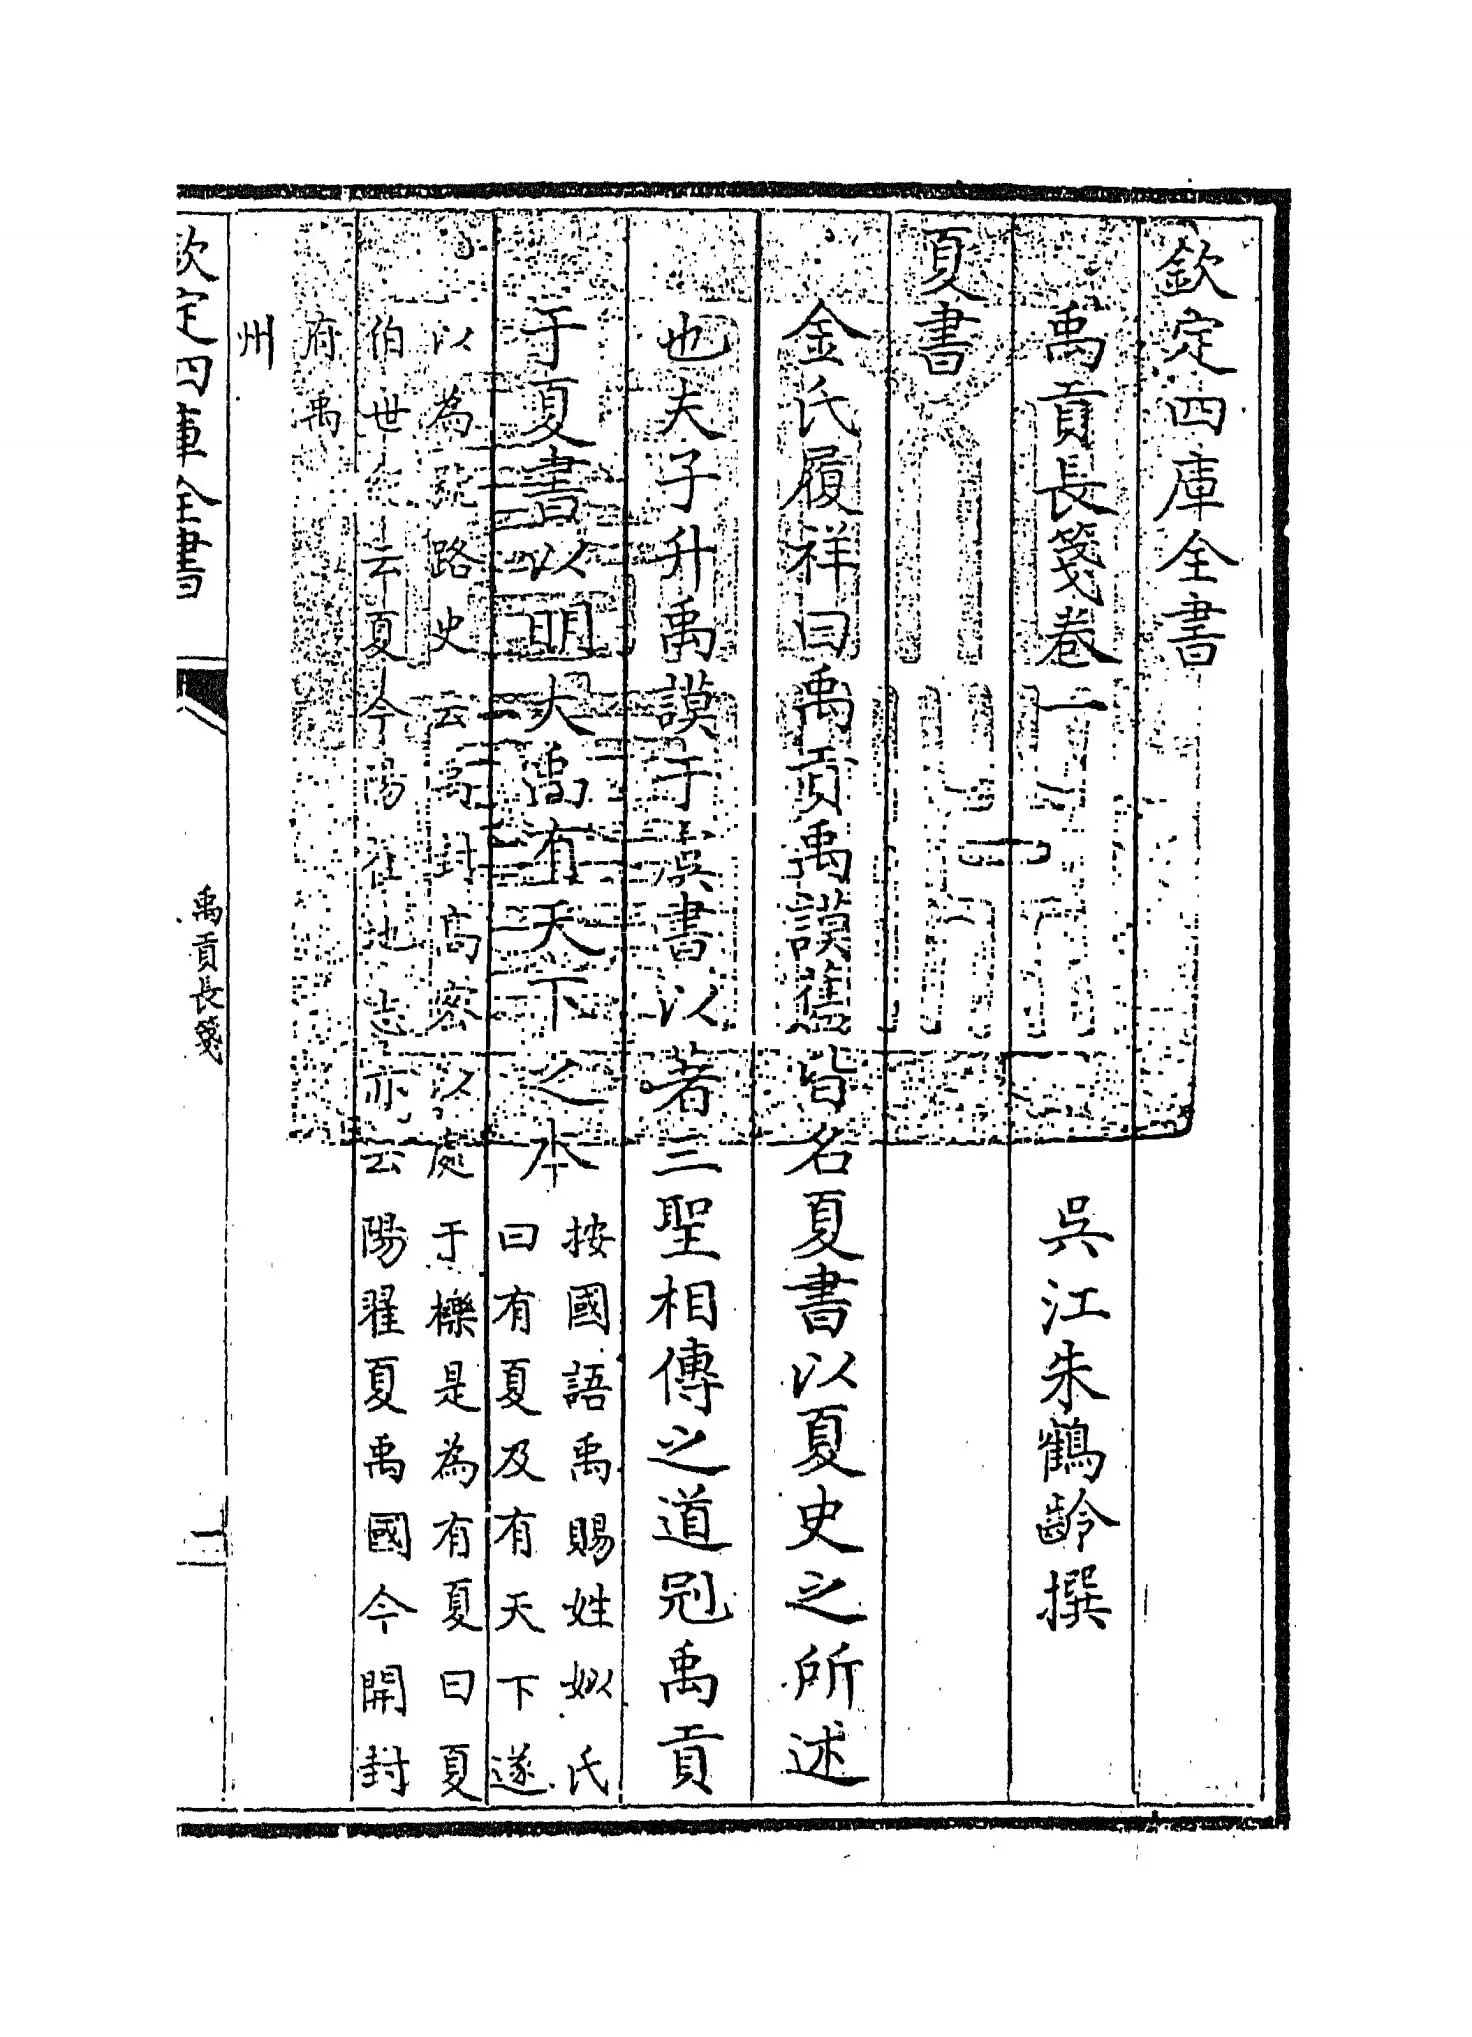 欽定四庫全書
禹貢長箋卷一
吳江朱鶴齡撰
夏書
金氏履祥曰禹貢禹謨舊皆名夏書以夏史之所述
也夫子升禹謨于虞書以著三聖相傳之道冠禹貢
于夏書以明大禹有天下之本
按國語禹賜姓姒氏
曰有夏及有天下遂
以為號路史云禹封高密以處于櫟是為有夏曰夏
伯世紀云夏今陽在地志亦云陽翟夏禹國今開封
府禹
州
欽定四庫全書
禹貢長箋
一